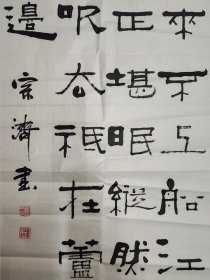 來不船江
正堪眠縱然
吹去祗在蘆
邊
宗濟書